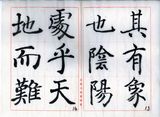 其有象
也陰陽
處乎天
地而難